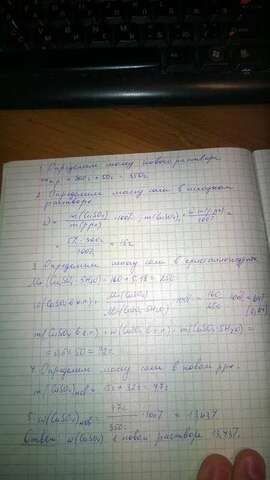 1. Определим массу нового раствора
m н.р. = 300г + 50г = 350г
2. Определим массу соли в исходном
растворе
ω = m(CuSO₄) / m(р-ра) · 100% ; m(CuSO₄) = ω·m(р-ра) / 100% =
= 5% · 300г / 100% = 15г
3. Определим массу соли в кристаллогидрате
Mr(CuSO₄·5H₂O) = 160 + 5·18 = 250
ω(CuSO₄ в к.г.) = Mr(CuSO₄) / Mr(CuSO₄·5H₂O) · 100% = 160 / 250 · 100% = 64% (0,64)
m(CuSO₄ в к.г.) = ω(CuSO₄ в к.г.) · m(CuSO₄·5H₂O) =
= 0,64 · 50 = 32г
4. Определим массу соли в новом р-ре
m(CuSO₄)нов = 15г + 32г = 47г
5. ω(CuSO₄)нов = 47г / 350г · 100% = 13,43%
Ответ: ω(CuSO₄) в новом растворе 13,43%